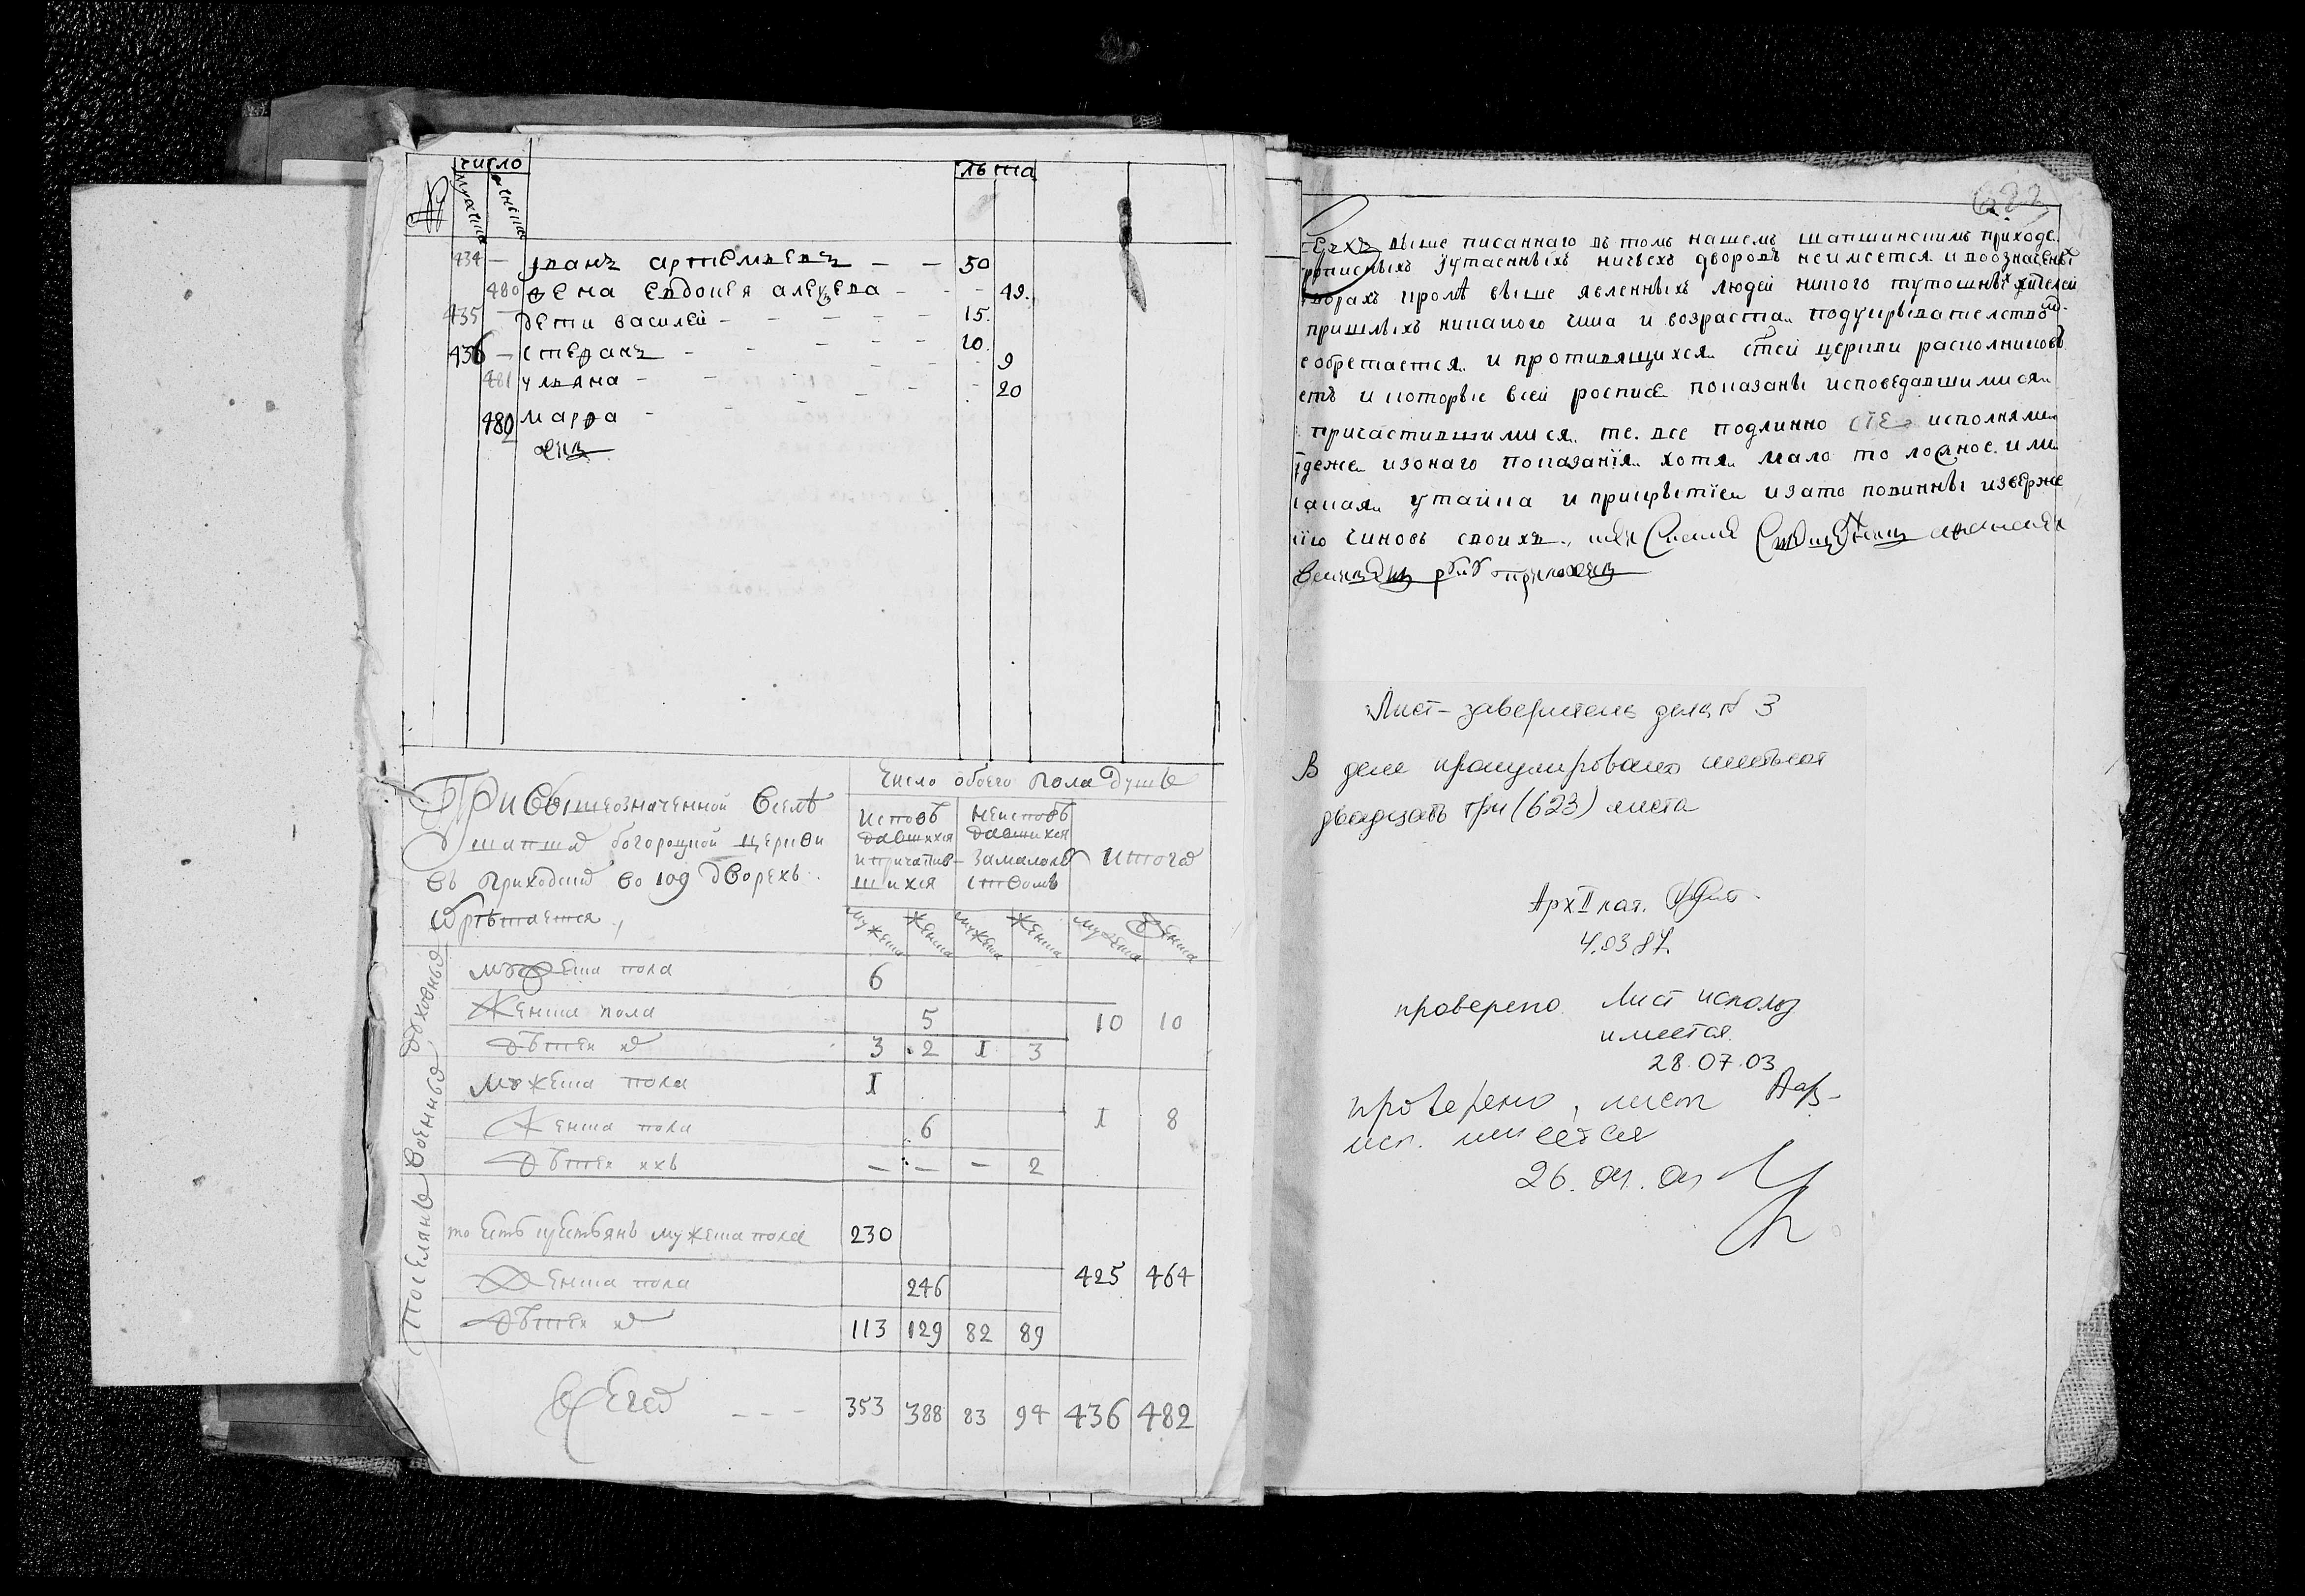 число лѣта
мужеска женска
434 — Иванъ артемьевъ — — 50
480 жена евдокея алеѯева — — — 49.
435 — дети василей — — — — — 15.
436 — стефанъ — — — — — 10.
481 ульяна — — — — — 9
482 марфа — — — — — 20
При вышеозначенной вселѣ
шапша богороцкой церкви
въ приходѣ во 109 дворехъ
обрѣтается
Число обоего пола душъ
исповѣ
давшихся
и причастив-
шихся
неисповѣ
давшихся
за малолѣ
ствомъ
итого
мужеска женска мужеска женска мужеска женска
духовныя
мужеска пола 6
женска пола 5 10 10
дѣтей их 3 2 1 3
военныя
мужеска пола 1
женска пола 6 1 8
дѣтей ихъ — — — 2
поселяне
то есть крестьянъ мужеска пола 230
женска пола 246 425 464
дѣтей их 113 129 82 89
Всего — — — 353 388 83 94 436 482
623
Сверхъ выше писаннаго въ томъ нашемъ шапшинскимъ приходе
прописныхъ утаенныхъ ничьехъ дворовъ неимеется и воозначеных
дворахъ кромѣ выше явленныхъ людей никого тутошныхъ жителей
пришлыхъ никакого чина и возраста подукрывателством
обретается и противящихся стой церкви расколниковъ
етъ и которые всей росписе показаны исповедавшимися
причастившимися те все подлинно сіе исполняли
ежели изонаго показанія хотя мало то ложное или
какая утайка и прикрытіе изато повинны изверже
нію чиновъ своихъ
руку приложилъ
Лист-заверитель дела № 3
В деле пронумеровано шестьсот
двадцать три (623) листа
Арх II кат.
4.03 87
проверено Лист использ
имеется
28.07.03
проверено, лист
исп. имеется
26.04.04